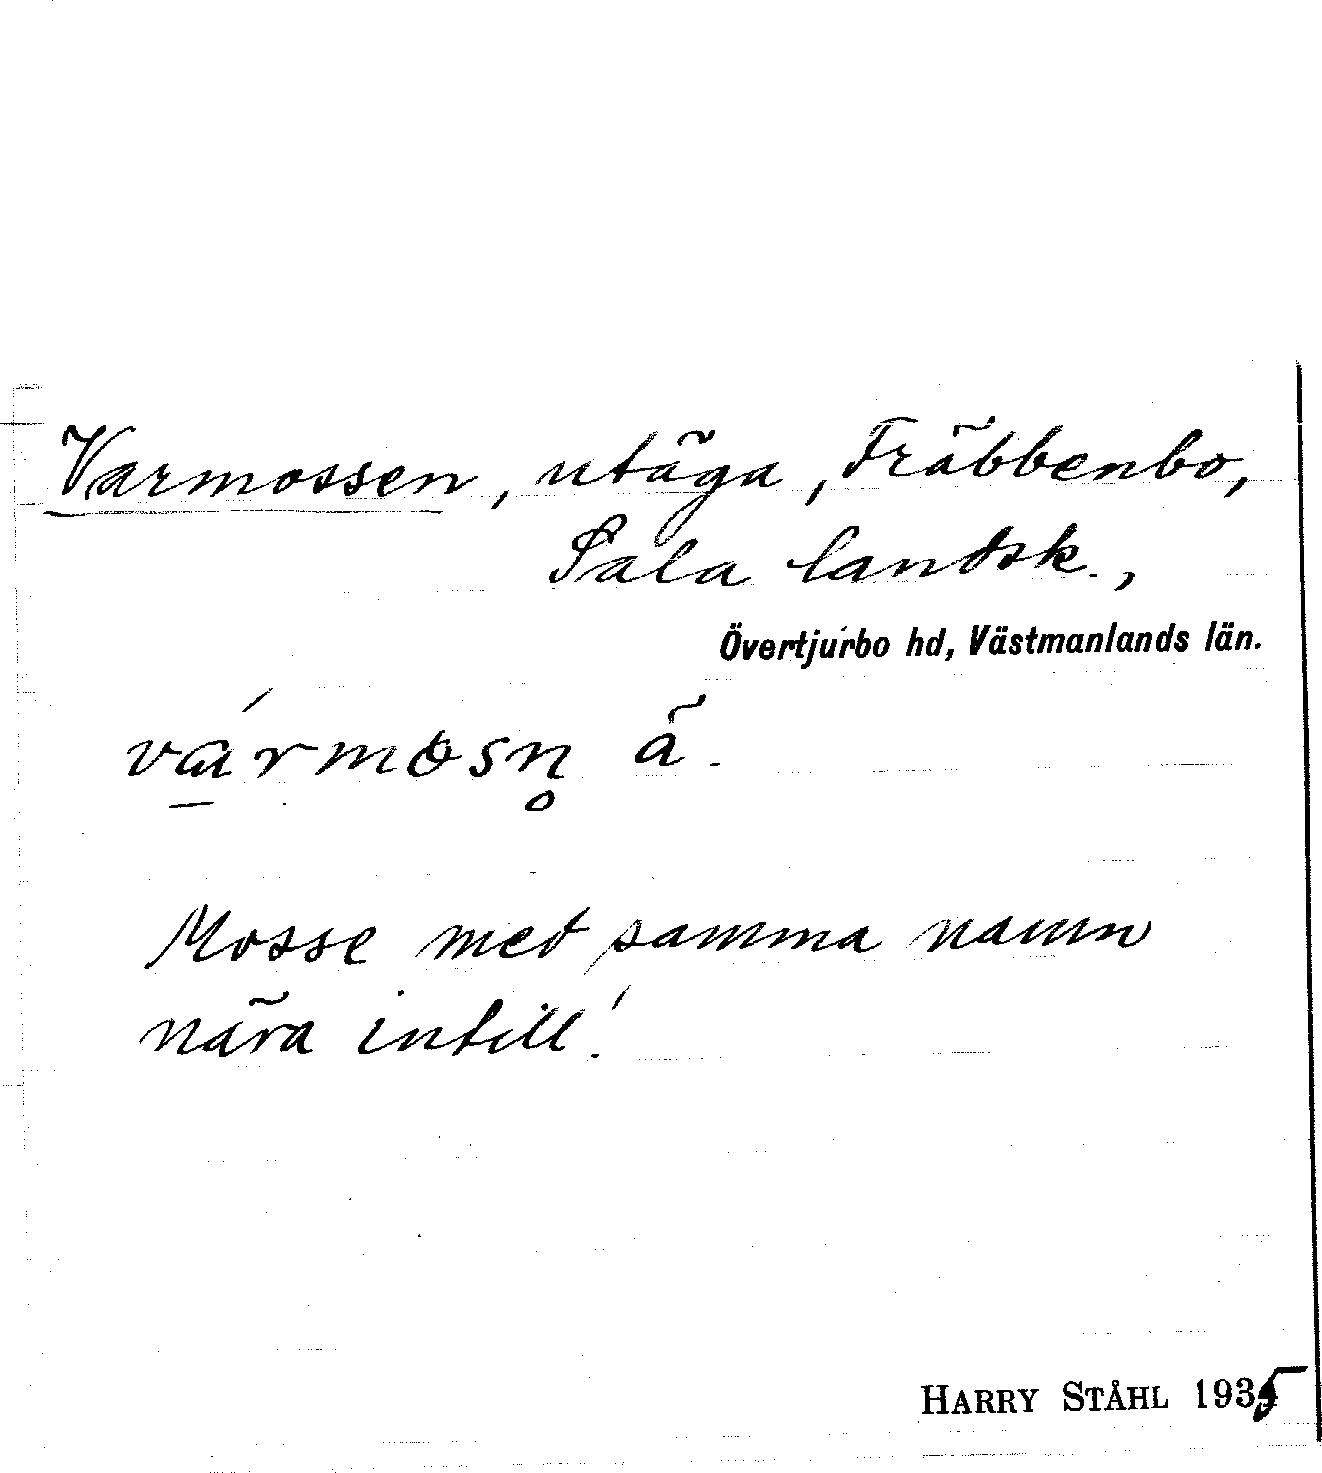 Varmossen, utäga, Fräbbenbo,
Sala landsk.,
Övertjurbo hd, Västmanlands län.
vármosn̥ ä.
Mosse med samma namn
nära intill!
HARRY STÅHL 1935